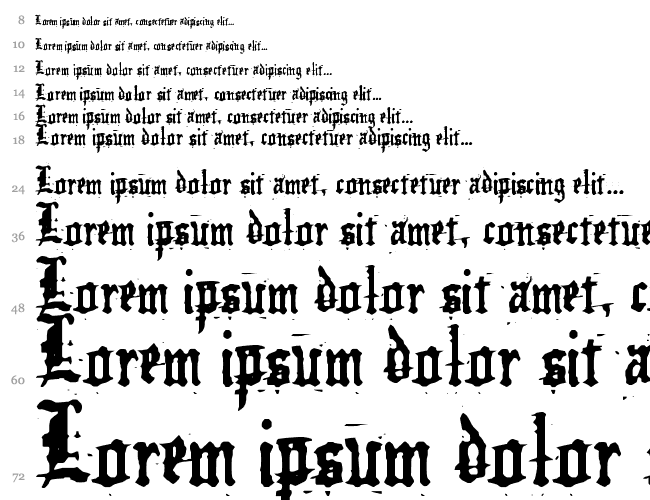 8 Lorem ipsum dolor sit amet, consectetuer adipiscing elit...
10 Lorem ipsum dolor sit amet, consectetuer adipiscing elit...
12 Lorem ipsum dolor sit amet, consectetuer adipiscing elit...
14 Lorem ipsum dolor sit amet, consectetuer adipiscing elit...
16 Lorem ipsum dolor sit amet, consectetuer adipiscing elit...
18 Lorem ipsum dolor sit amet, consectetuer adipiscing elit...
24 Lorem ipsum dolor sit amet, consectetuer adipiscing elit...
36 Lorem ipsum dolor sit amet, consectetue
48 Lorem ipsum dolor sit amet, c
60 Lorem ipsum dolor sit a
72 Lorem ipsum dolor